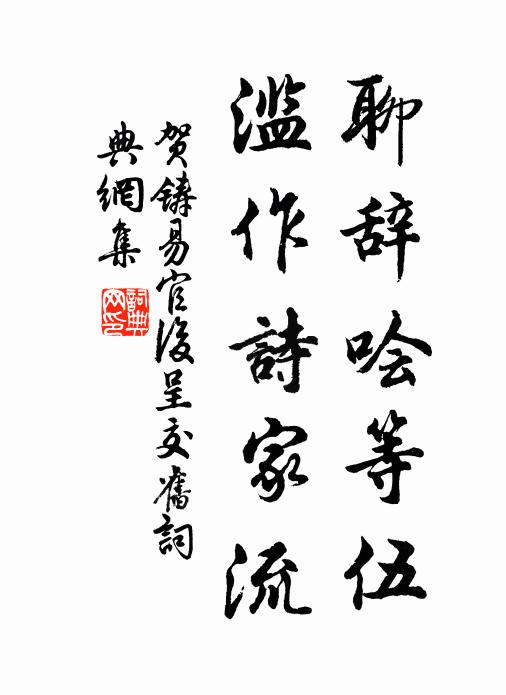 聊辞哙等伍
滥作詩家流
贺铸易官後呈交舊詞
典網集
詞典
网印